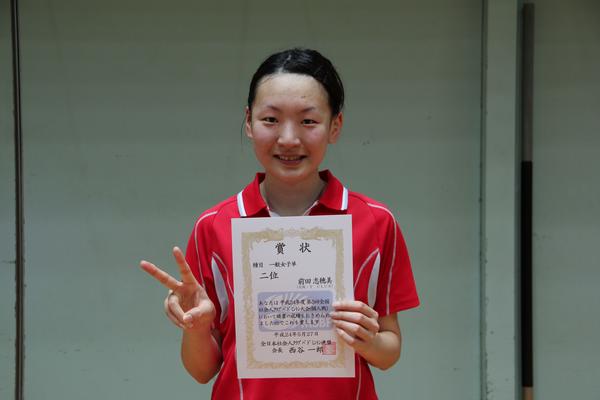 賞状
種目 一般女子単
二位
前田志穂美
あなたは平成24年度第5回全国
社会人クラブバドミントン大会(個人戦)
において頭書の成績をおさめられ
ましたのでこれを賞します
平成24年5月27日
全日本社会人クラブバドミントン連盟
会長 西谷一郎